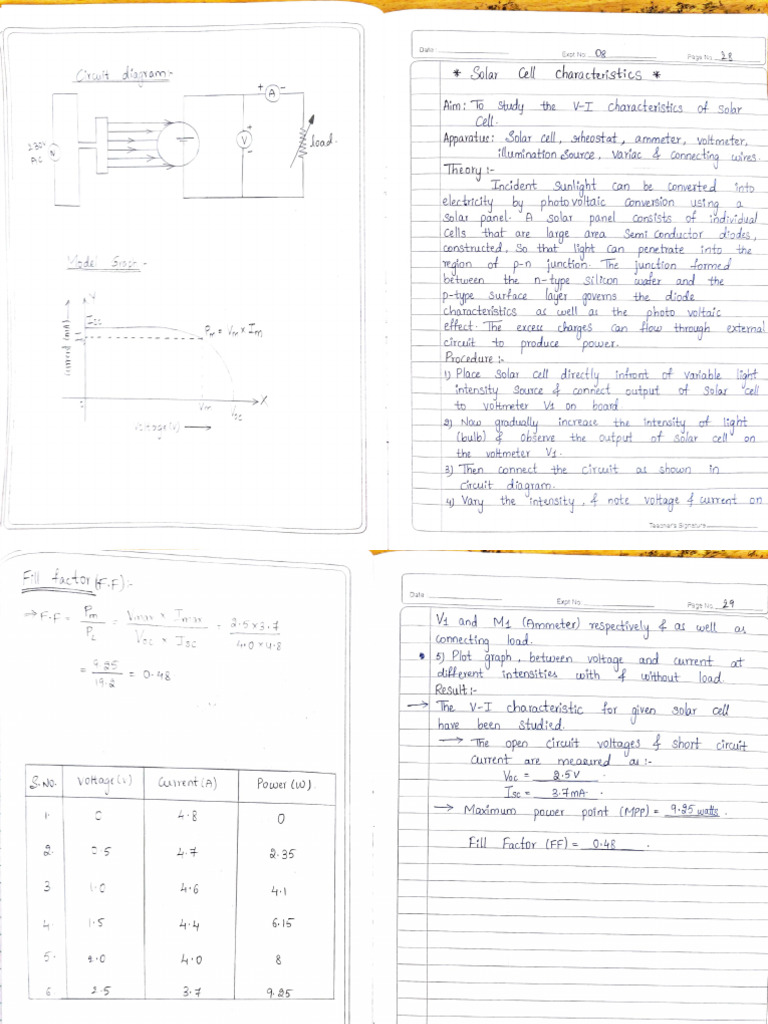 Circuit diagram:-
230V
A.C
N
+ A -
V
+
-
load.
Model Graph:-
Y
Isc
Im
Pm = Vm × Im
Current (mA)
Vm
Voc
X
Voltage(V)
Date :
Expt No. 08
Page No. 28
* Solar Cell characteristics *
Aim: To study the V-I characteristics of solar
cell.
Apparatus: Solar cell, rheostat, ammeter, voltmeter,
illumination source, variac & connecting wires.
Theory :-
Incident Sunlight can be converted into
electricity by photovoltaic conversion using a
solar panel. A solar panel consists of individual
cells that are large area Semi Conductor diodes,
constructed, So that light can penetrate into the
region of p-n junction. The junction formed
between the n-type silicon wafer and the
p-type surface layer governs the diode
characteristics as well as the photo voltaic
effect. The excess charges can flow through external
circuit to produce power.
Procedure :-
1) Place solar cell directly infront of variable light
intensity source & connect output of Solar cell
to voltmeter V1 on board
2) Now gradually increase the intensity of light
(bulb) & observe the output of solar cell on
the voltmeter V1.
3) Then connect the circuit as shown in
circuit diagram.
4) Vary the intensity, & note voltage & current on
Teacher's Signature
Fill factor (F.F) :-
→ F.F = Pm/Pt = Vmax × Imax / Voc × Isc = 2.5×3.7 / 4.0×4.8
= 9.25/19.2 = 0.48
S.No. Voltage(V) Current(A) Power(W)
1. 0 4.8 0
2. 0.5 4.7 2.35
3 1.0 4.6 4.1
4. 1.5 4.4 6.15
5. 2.0 4.0 8
6 2.5 3.7 9.25
Date :
Expt No.
Page No. 29
V1 and M1 (Ammeter) respectively & as well as
connecting load.
• 5) Plot graph, between voltage and current at
different intensities with & without load.
Result :-
→ The V-I characteristic for given solar cell
have been studied.
→ The open circuit voltages & short circuit
current are measured as :-
Voc = 2.5V
Isc = 3.7mA.
→ Maximum power point (MPP) = 9.25 watts.
Fill Factor (FF) = 0.48.